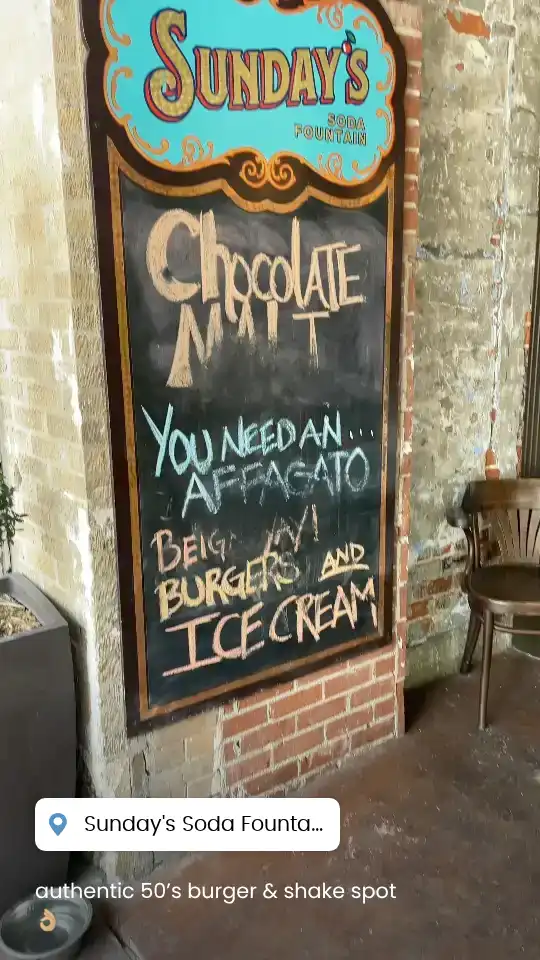 SUNDAY'S
SODA
FOUNTAIN
Chocolate
MALT
YOU NEED AN...
AFFAGATO
BURGERS AND
ICE CREAM
Sunday's Soda Founta...
authentic 50's burger & shake spot
👌